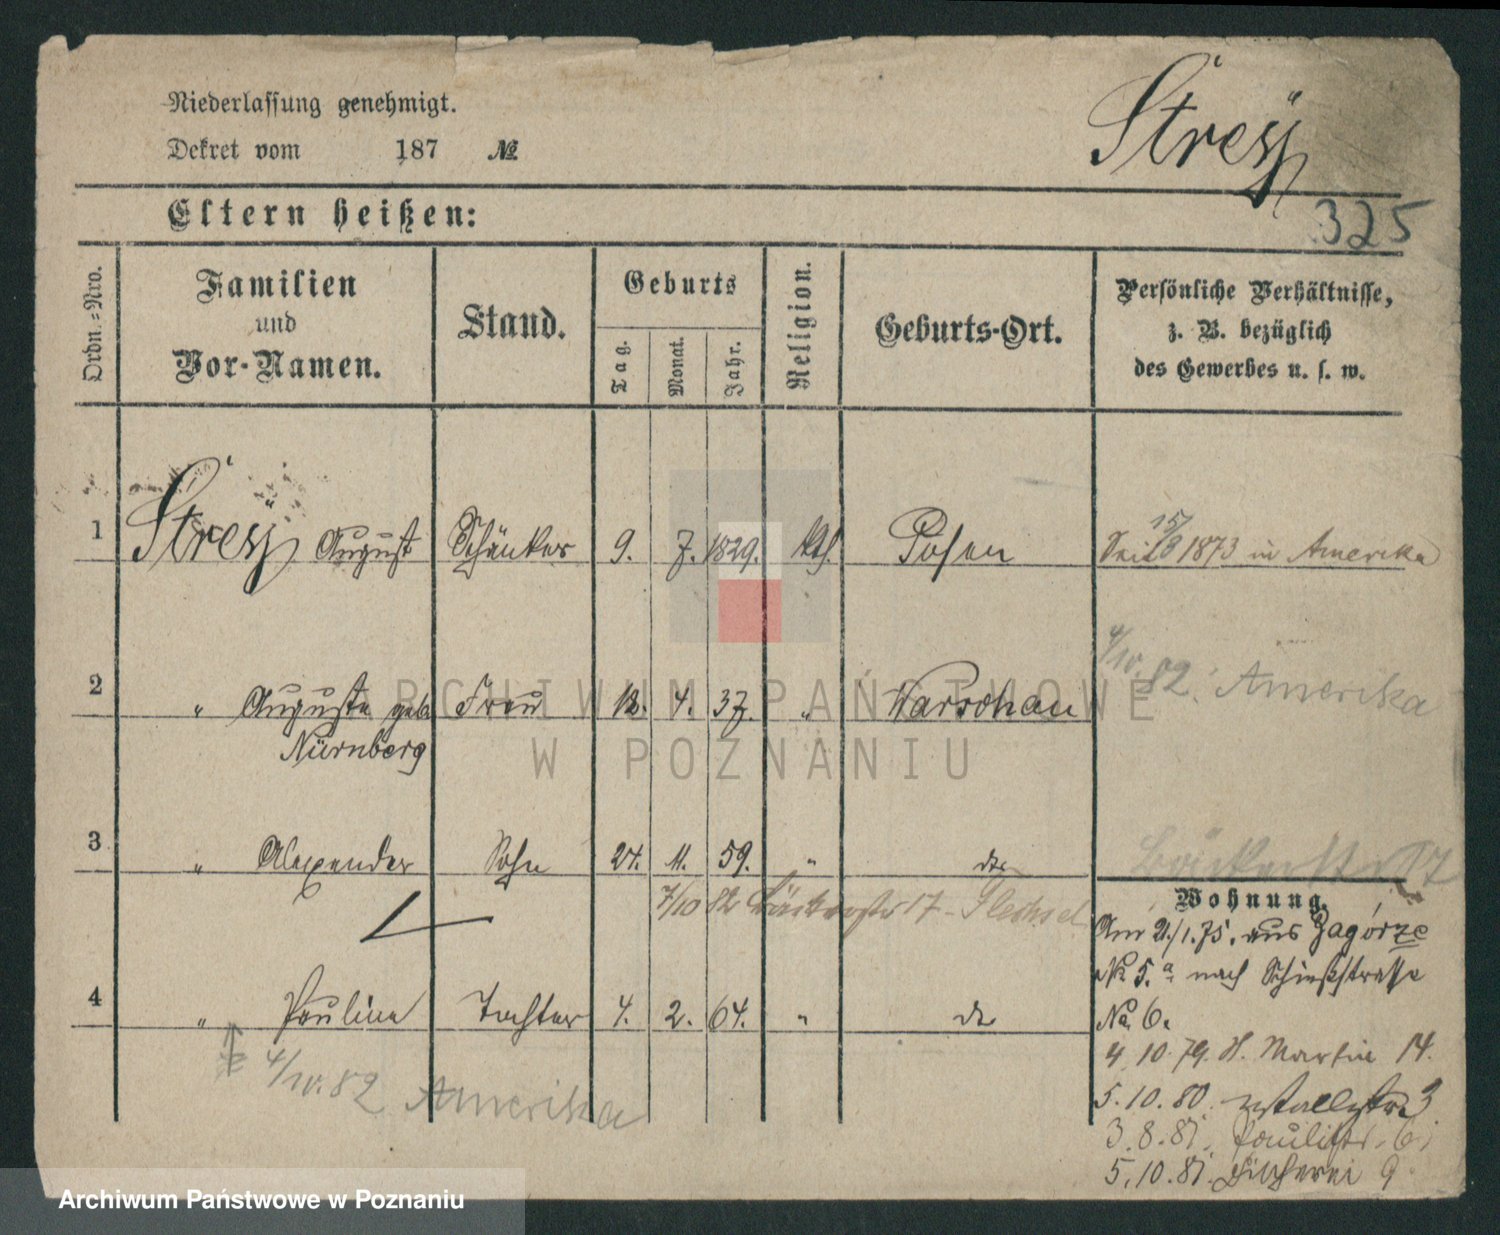 Niederlassung genehmigt.
Dekret vom 187 №
Streÿ
325
Eltern heißen:
Ordn.-Nro.
Familien
und
Vor-Namen.
Stand.
Geburts
Tag.
Monat.
Jahr.
Religion.
Geburts-Ort.
Persönliche Verhältnisse,
z. B. bezüglich
des Gewerbes u. s. w.
1 Streÿ August Schänker 9. 7. 1829. kth. Posen Seit 15/8 1873 in Amerika
4/10. 82. Amerika
2 " Auguste geb. Frau 12. 4. 37. " Warschau
Nürnberg
3 " Alexander Sohn 24. 11. 59. " dto
Bäckerstr 17
7/10 82 Bäckerstr 17 - Flechsel
4 " Pauline Tochter 4. 2. 64. " dto
4/10. 82 Amerika
Wohnung.
Am 21/1. 75. aus Zagórze
№ 5.a nach Schießstrasse
No. 6.
4. 10. 79. St. Martin 14.
5. 10. 80. 3
3. 8. 81. Paulistr. 6
5. 10. 81. Fischerei 9
ARCHIWUM PAŃSTWOWE
W POZNANIU
Archiwum Państwowe w Poznaniu